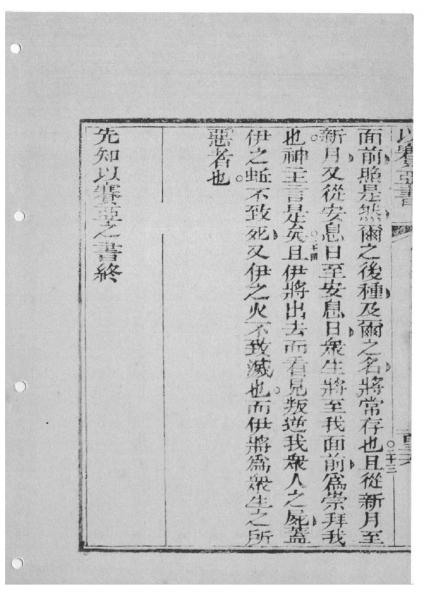 以賽亞書
面前照是然爾之後種及爾之名將常存也且從新月至
二十三
新月又從安息日至安息日衆生將至我面前爲崇拜我
也神主言是矣且伊將出去而看見叛逆我衆人之屍蓋
二十四
伊之蚯不致死又伊之火不致滅也而伊將爲衆生之所
惡者也
先知以賽亞之書終